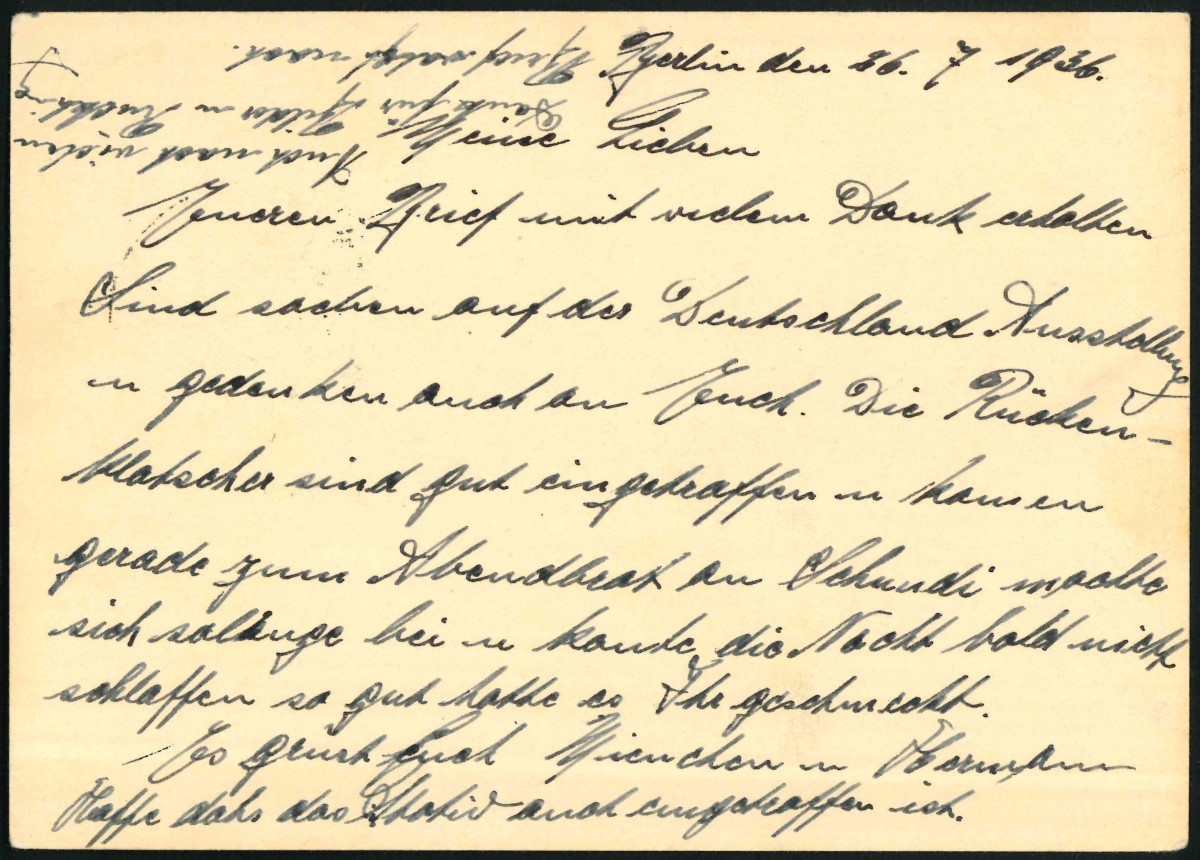 Berlin den 26. 7 1936.
Meine Lieben
Eueren Brief mit vielem Dank erhalten
Sind soeben auf der Deutschland Ausstellung
u gedenken auch an Euch. Die Rücken-
klatscher sind gut eingetroffen u kamen
gerade zum Abendbrot an Schundi machte
sich solange bei u konte die Nacht bald nicht
schlaffen so gut hatte es Ihr geschmeckt.
Es grüst Euch Mienchen u Hermann
Hoffe dahs das Stativ auch eingetroffen ist.
Auch noch vielen
Dank für Bilder u
Brief folgt noch.